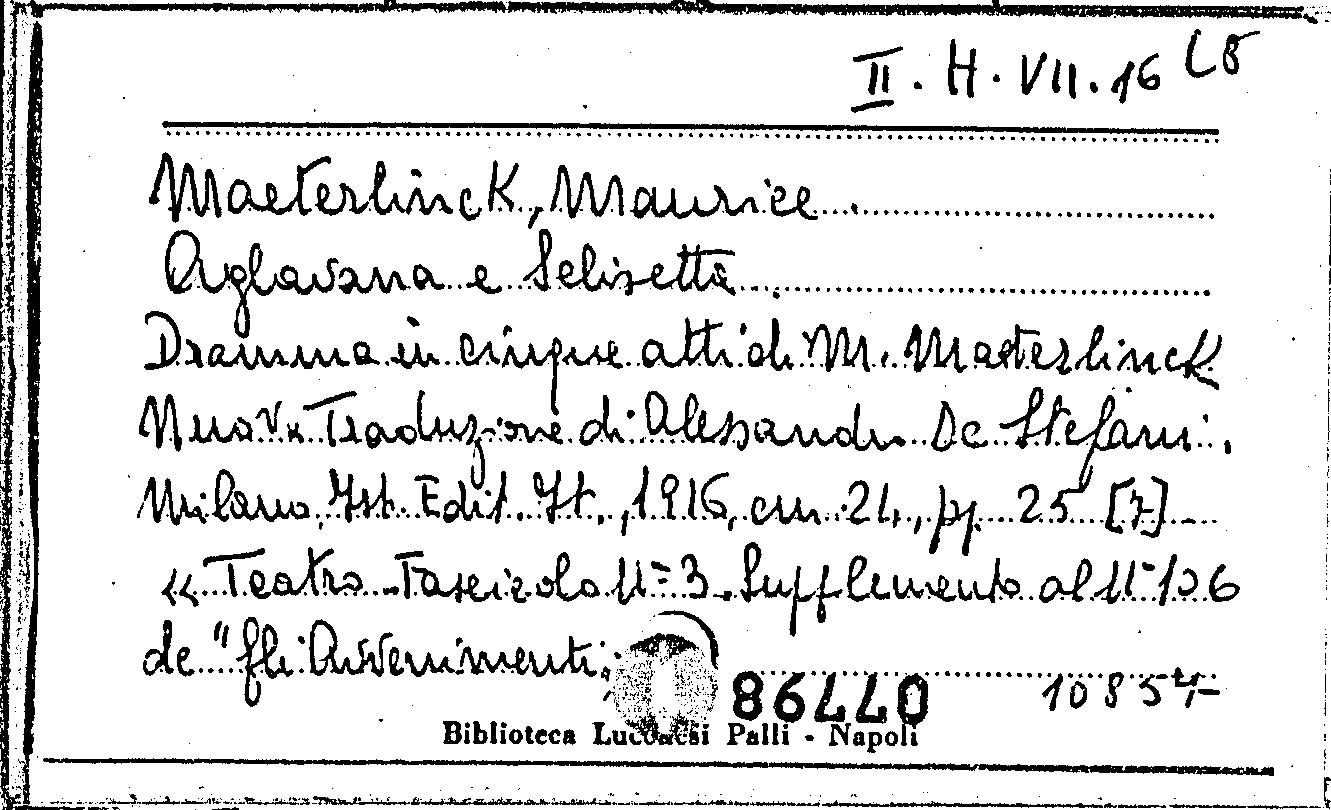 II. H. VII. 16 L8
Maeterlinck, Maurice
Aglavana e Selisetta.
Dramma in cinque atti di M. Maeterlinck
Nuova Traduzione di Alessandro De Stefani.
Milano, Ist. Edit. It., 1916, cm. 21, pp. 25 [7]
« Teatro - Fascicolo n° 3. Supplemento al n° 106
de "Gli Avvenimenti.
86440
Biblioteca Lucchesi Palli - Napoli